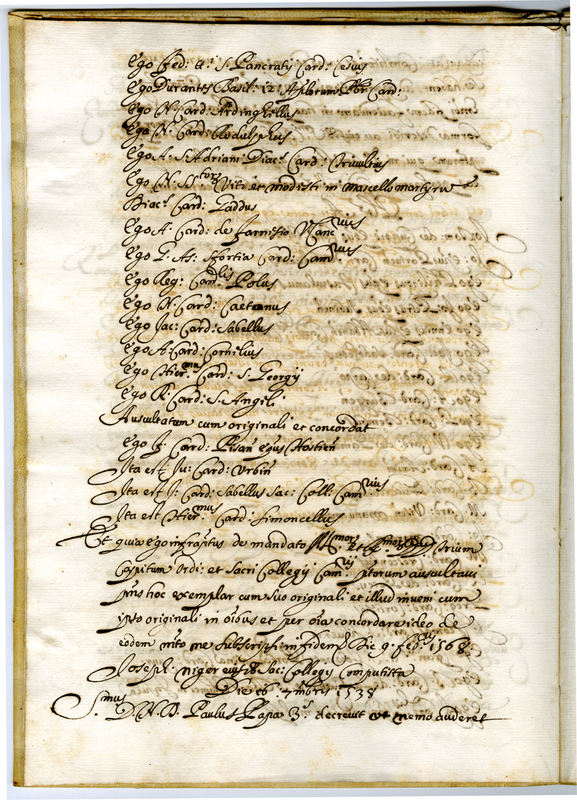 Ego Fed: tt: S. Pancratij Card: Cesius
Ego Durantes Basil: 12: Aplorum Pbr Card:
Ego N: Card: Ardinghellus
Ego N: Card: Rodulphus
Ego A: S. Adriani Diacs Card: Trivultius
Ego N: SStorum Viti et modesti in Marcello martyru
Diacs Card: Gaddus
Ego A: Card: de Farnesio Vcanrius
Ego G: As: Sfortia Card: Camrius
Ego Reg: Cardlis Polus
Ego N: Card: Caetanus
Ego Jac: Card: Sabellus
Ego A: Card: Cornelius
Ego Hiermus Card: S. Georgij
Ego R: Card: S. Angeli
Ausultatum cum originali et concordat
Ego J: Card: Pisan epus Hostien
Ita est Ju: Card: Urbin
Ita est J: Card: Sabellus Sac: Coll: Camrius
Ita est Hiermus Card: Simoncellus
Et quia ego infraptus de mandato Illmor et Rmor DD trium
Capitum Ordi: et Sacri Collegij Camrij ptorum ausultavi
pns hoc exemplar cum suo originali et illud inveni cum
ipso originali in oibus et per oia concordare ideo de
eodem mto me subscripsi in fidem Die 9 febrij 1568
Joseph: niger eiusd: Sac: Collegij computista
Die 26 9mbris 1538
Smus D. N. D. Paulus Papa 3s decrevit ut nemo auderet